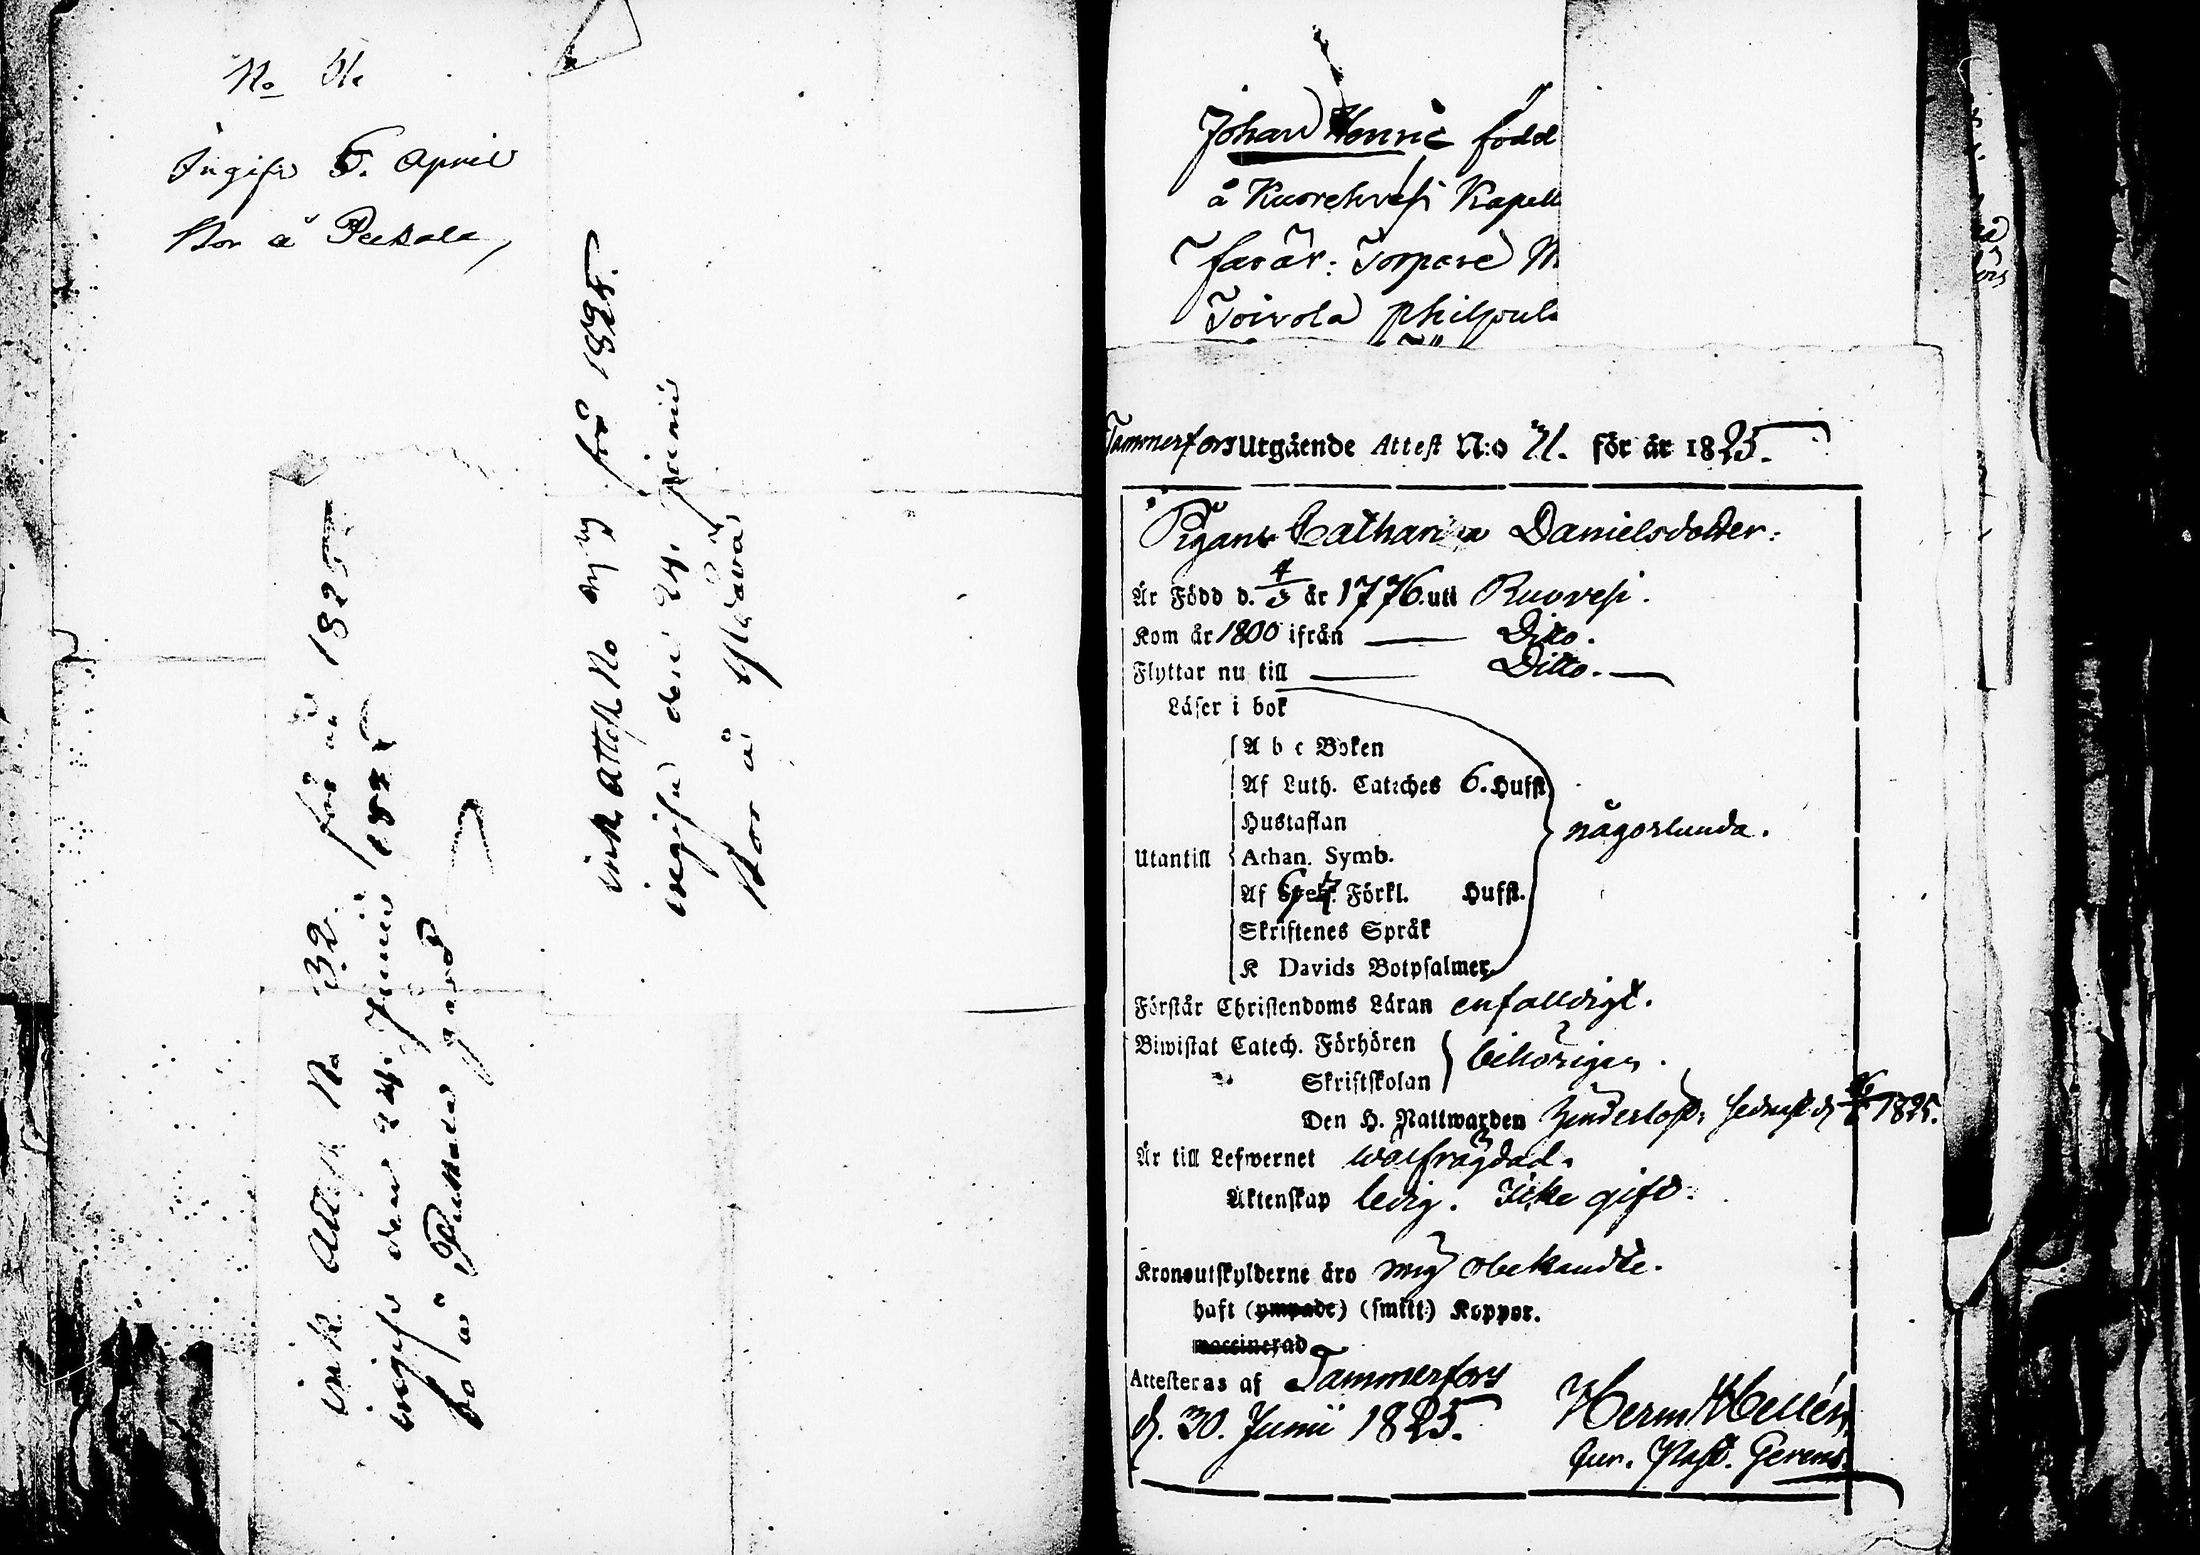 No 61.
Ingifv. 5. April
Bor å Pekkala
ink. Attest No 32 för år 1825
ingifv. den 24. Junii 1825
bo å Pekkala gård
ink. attest No för 1825.
ingifv. den 24. Junii
Bor å
Johan Henric född
å Kuorehvesi Kapell
farär: Torpare M
Toivola
Tammerfors Utgående Attest N:o 71. för år 1825.
Pigan Catharina Danielsdotter:
Är Född d. 4/5 år 1776. uti Ruovesi.
Kom år 1800 ifrån — Ditto.
Flyttar nu till — Ditto. —
Läser i bok
A b c Boken
Af Luth. Cateches 6. Hufst.
Hustaflan
någorlunda.
Utantill Athan. Symb.
Af Förkl. Hufst.
Skriftenes Språk
K Davids Botpsalmer
Förstår Christendoms Läran enfalldigt.
Biwistat Catech. Förhören behörigen.
Skriftskolan
Den H. Nattwarden 1825.
Är till Lefwernet wälfrägdad.
Äktenskap ledig. Icke gift.
Kronoutskylderne äro mig obekandte.
haft (ympade) (smitt:) Koppor.
waccinerad
Attesteras af Tammerfors
d. 30. Junii 1825. Herm Hellén
Past. Gerens.